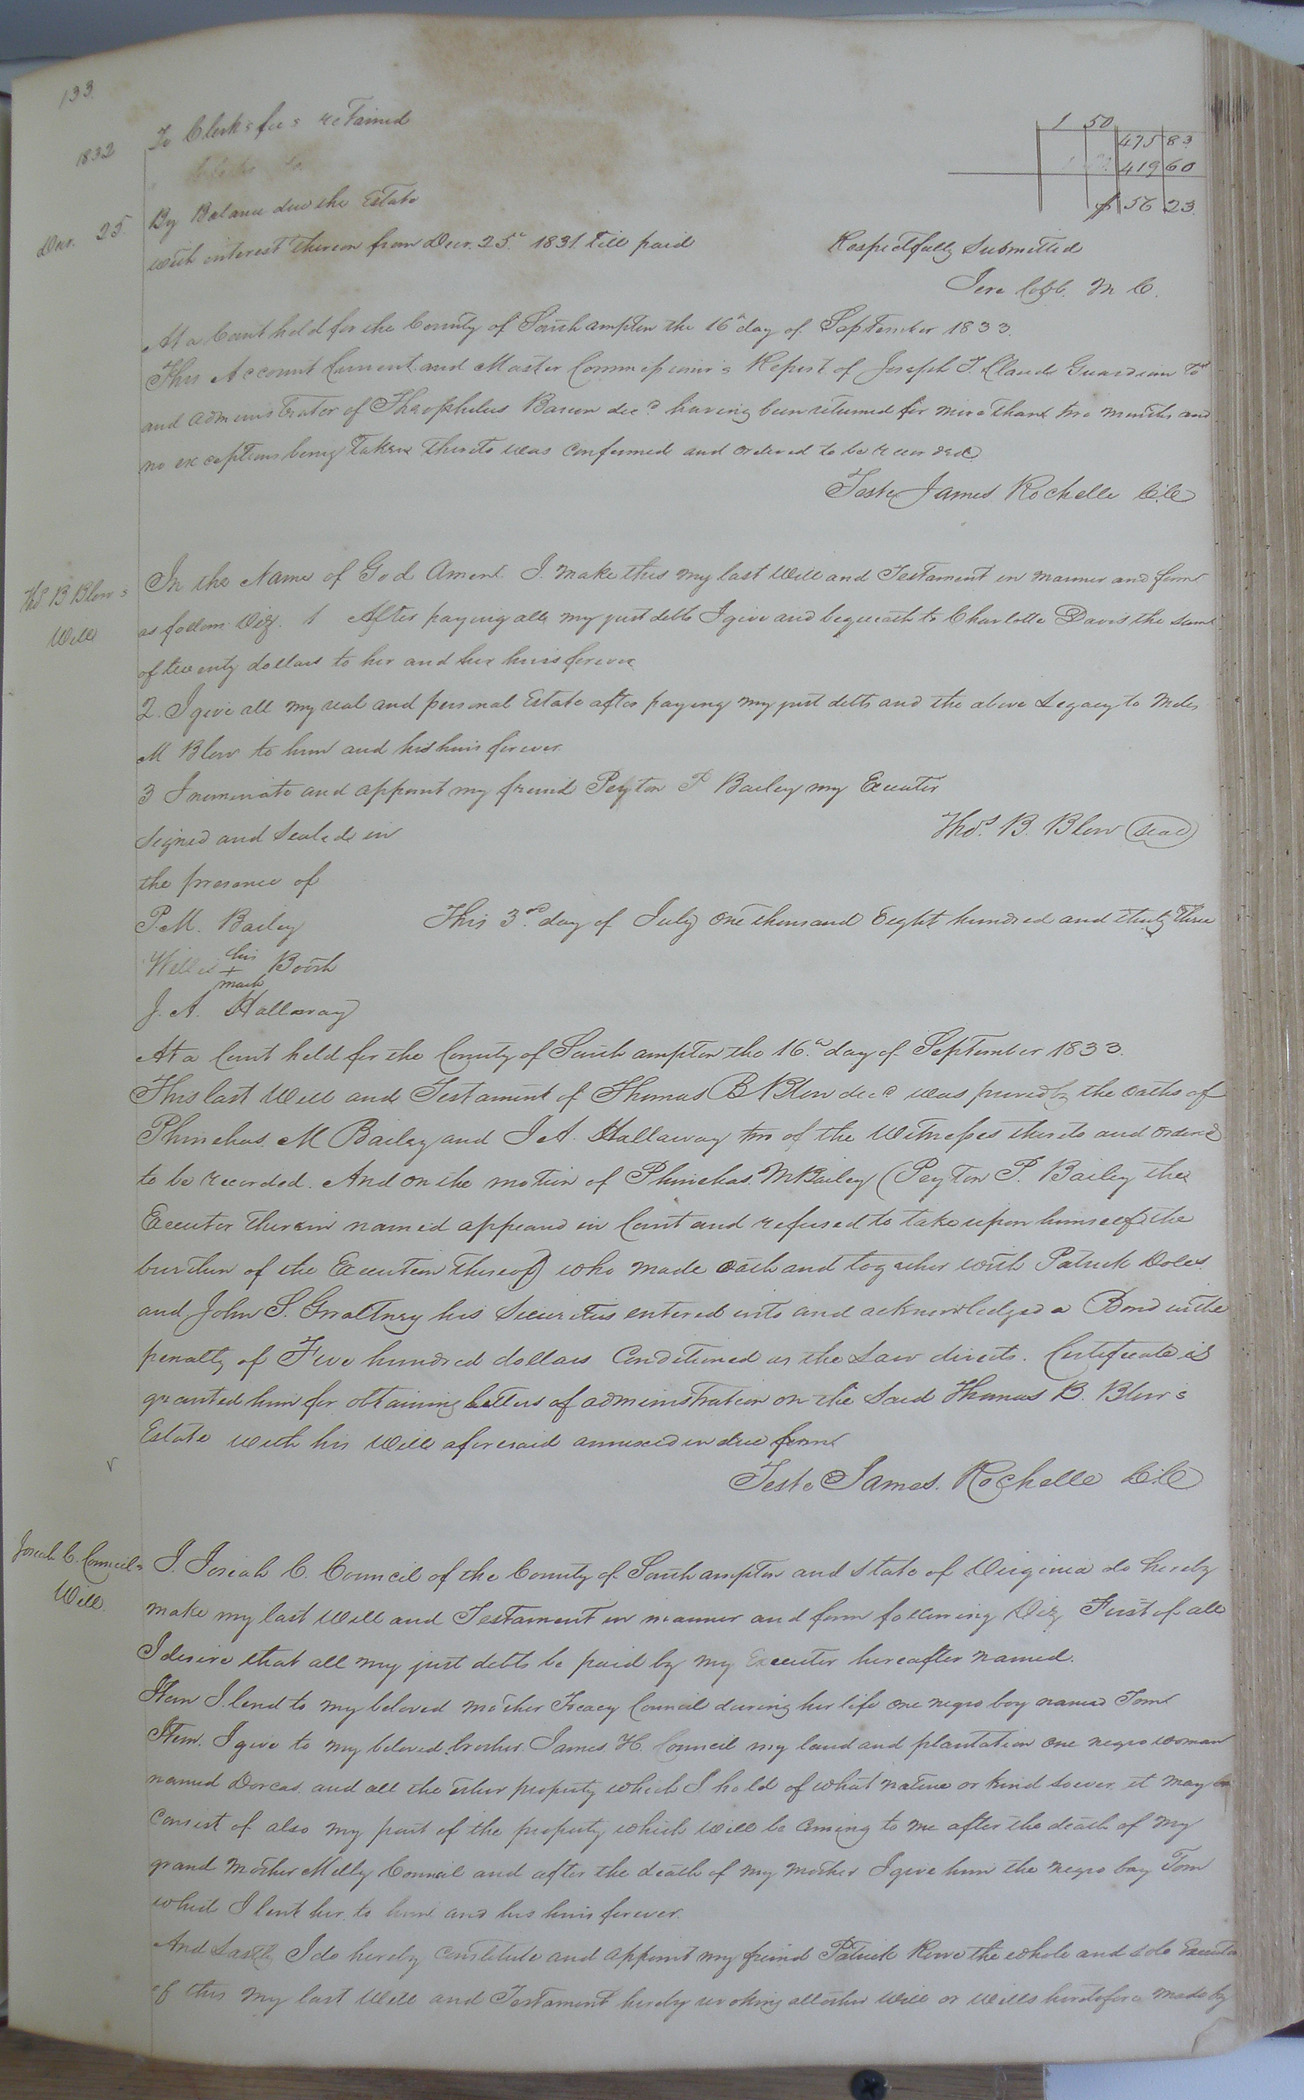 133
1832 To Clerks fees retained 1 50
475 83
419 60
By Balance due the Estate $ 56 23
Decr. 25 with interest thereon from Decr. 25th 1831 till paid
Respectfully Submitted
Jere Cobb. M C.
At a Court held for the County of Southampton the 16th day of September 1833.
This Account Current and Master Commissioner's Report of Joseph T. Claud Guardian to
and administrator of Theophilus Barum decd having been returned for more than two months and
no exceptions being taken thereto was confirmed and ordered to be recorded
Teste James Rochelle C.C
Thos B Blow's
Will
In the Name of God Amen. I make this my last Will and Testament in manner and form
as follows Viz. 1 After paying all my just debts I give and bequeath to Charlotte Davis the sum
of twenty dollars to her and her heirs forever
2. I give all my real and personal Estate after paying my just debts and the above Legacy to Miles
M Blow to him and his heirs forever.
3 I nominate and appoint my friend Peyton P Bailey my Executor
Thos. B. Blow (seal)
Signed and Sealed in
the presence of
P. M. Bailey This 3rd day of July One thousand Eight hundred and thirty three
Willis his + mark Booth
J. A. Hallaway
At a Court held for the County of Southampton the 16th day of September 1833.
This last Will and Testament of Thomas B Blow decd was proved by the oaths of
Phinehas M Bailey and J. A. Hallaway two of the Witnesses thereto and ordered
to be recorded. And on the motion of Phinehas M Bailey (Peyton P. Bailey the
Executor therein named appeared in Court and refused to take upon himself the
burthen of the Execution thereof) who made oath and together with Patrick Doles
and John S. Gwaltney his Securities entered into and acknowledged a Bond in the
penalty of Five hundred dollars Conditioned as the Law directs. Certificate is
granted him for obtaining letters of administration on the Said Thomas B. Blow's
Estate with his Will aforesaid annexed in due form
Teste James Rochelle C.C
Josiah C. Council's
Will
I. Josiah C. Council of the County of Southampton and State of Virginia do hereby
make my last Will and Testament in manner and form following Viz First of all
I desire that all my just debts be paid by my Executor hereafter named.
Item I lend to my beloved mother Council during her life one negro boy named Tom
Item. I give to my beloved brother James H. Council my land and plantation one negro woman
named Dorcas and all the other property which I hold of what nature or kind soever it may
consist of also my part of the property which will be coming to me after the death of my
grand Mother Milly Council and after the death of my mother I give him the negro boy Tom
which I lent her to him and his heirs forever.
And Lastly I do hereby constitute and appoint my friend Patrick Rowe the whole and sole Executor
of this my last Will and Testament hereby revoking all other Will or Wills heretofore made by